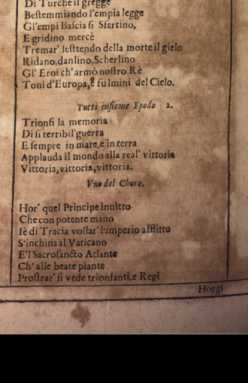 Di Turche il gregge
Bestemmiando l'empia legge
Gl'empi Bascia si Sfertino,
E gridino mercè
Tremar' sentendo della morte il gielo
Ridano, danlino, Scherlino
Gl' Eroi ch'armò nostro Rè
Toni d'Europa, E fulmini del Cielo.
Tutti insieme Epodo 2.
Trionfi la memoria
Di si terribil' guerra
E sempre in mare, e in terra
Applauda il mondo alla real' vittoria
Vittoria, vittoria, vittoria.
Vno del Choro.
Hor' quel Principe inuitto
Che con potente mano
Fè di Tracia vostar' l'imperio afflitto
S'inchina al Vaticano
E'l Sacrosancto Atlante
Ch' alle beate piante
Prostrar' si vede trionfanti, e Regi
Horgi